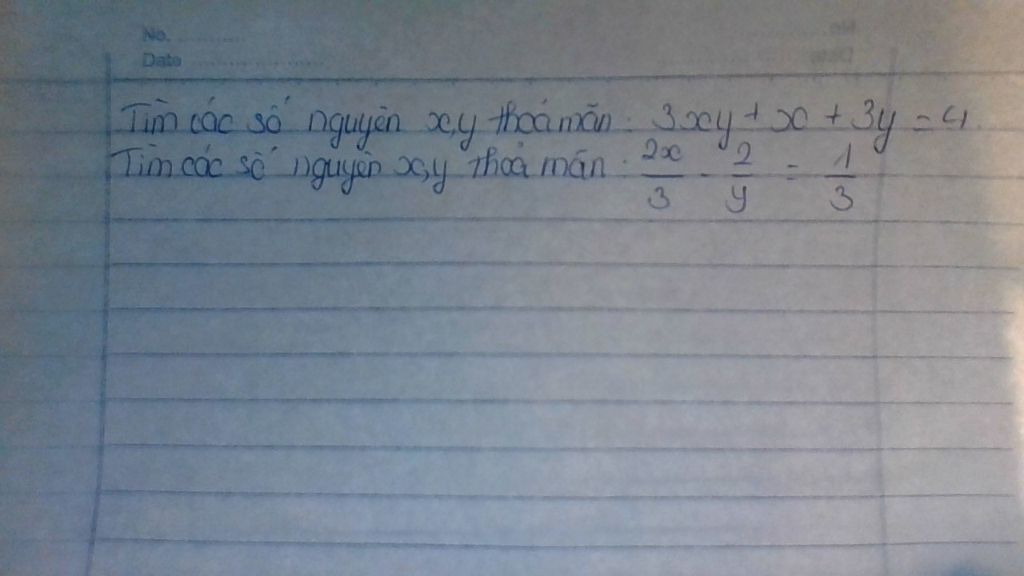 No. ............
Date ........................
Tìm các số nguyên x,y thoả mãn: 3xy + x + 3y = 4.
Tìm các số nguyên x,y thoả mãn: 2x/3 - 2/y = 1/3